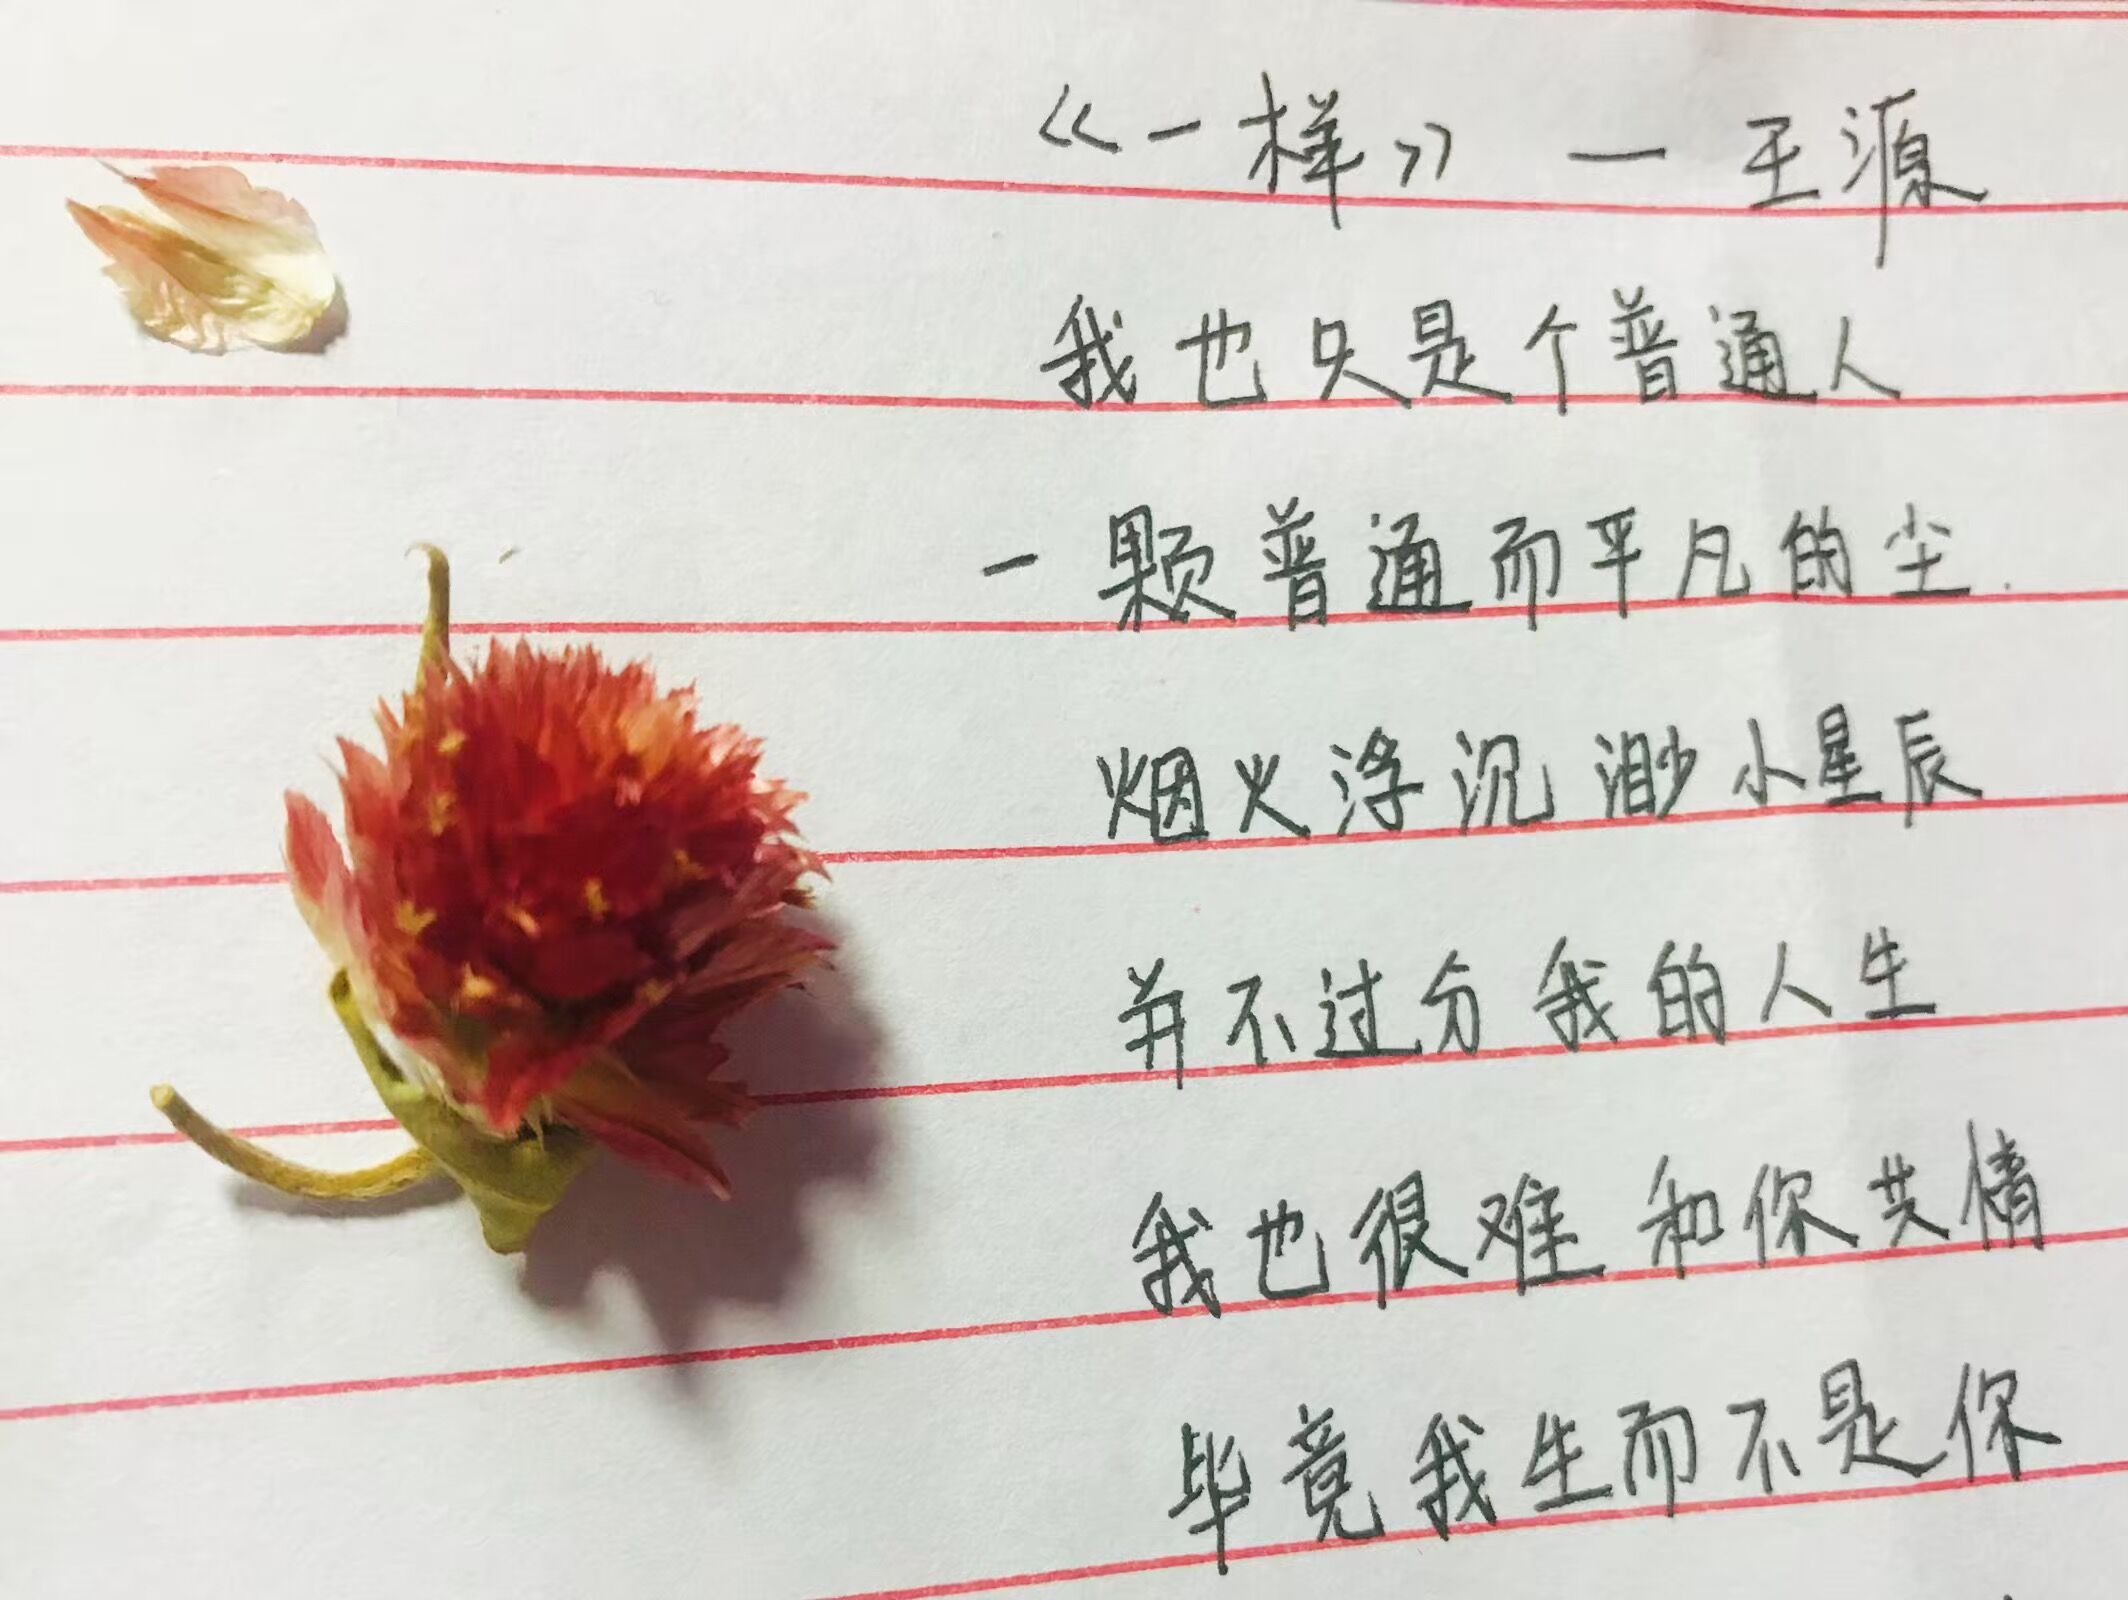 《一样》 — 王源
我也只是个普通人
一颗普通而平凡的尘.
烟火浮沉 渺小星辰
并不过分我的人生
我也很难和你共情
毕竟我生而不是你